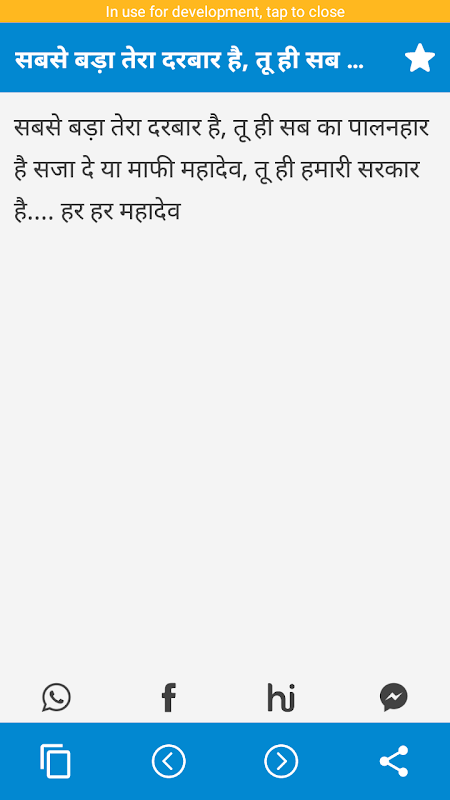 In use for development, tap to close
सबसे बड़ा तेरा दरबार है, तू ही सब ...
सबसे बड़ा तेरा दरबार है, तू ही सब का पालनहार
है सजा दे या माफी महादेव, तू ही हमारी सरकार
है.... हर हर महादेव
f
hi